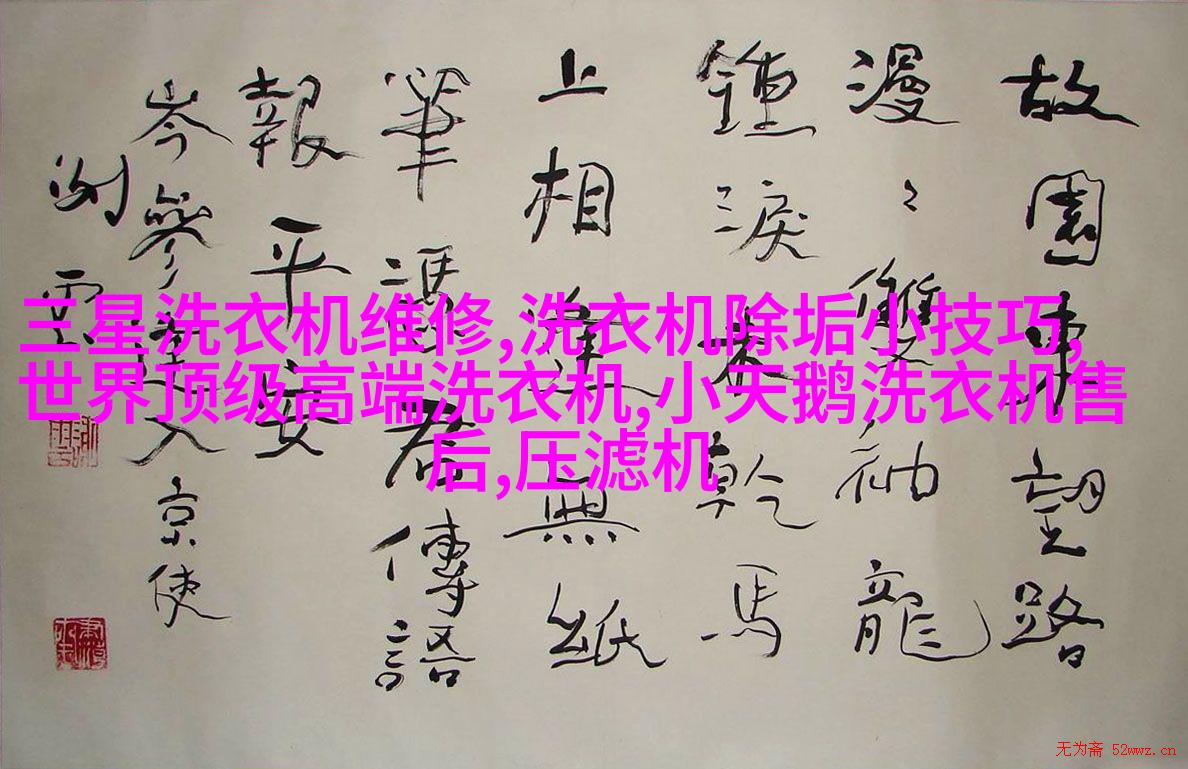 故園東望路
漫〻雙袖龍
鍾淚乾馬
上相逢無紙
筆憑君傳語
報平安
岑參逢入京使
三星洗衣机维修,洗衣机除垢小技巧,
世界顶级高端洗衣机,小天鹅洗衣机售
后,压滤机
无为斋 52wwz.cn